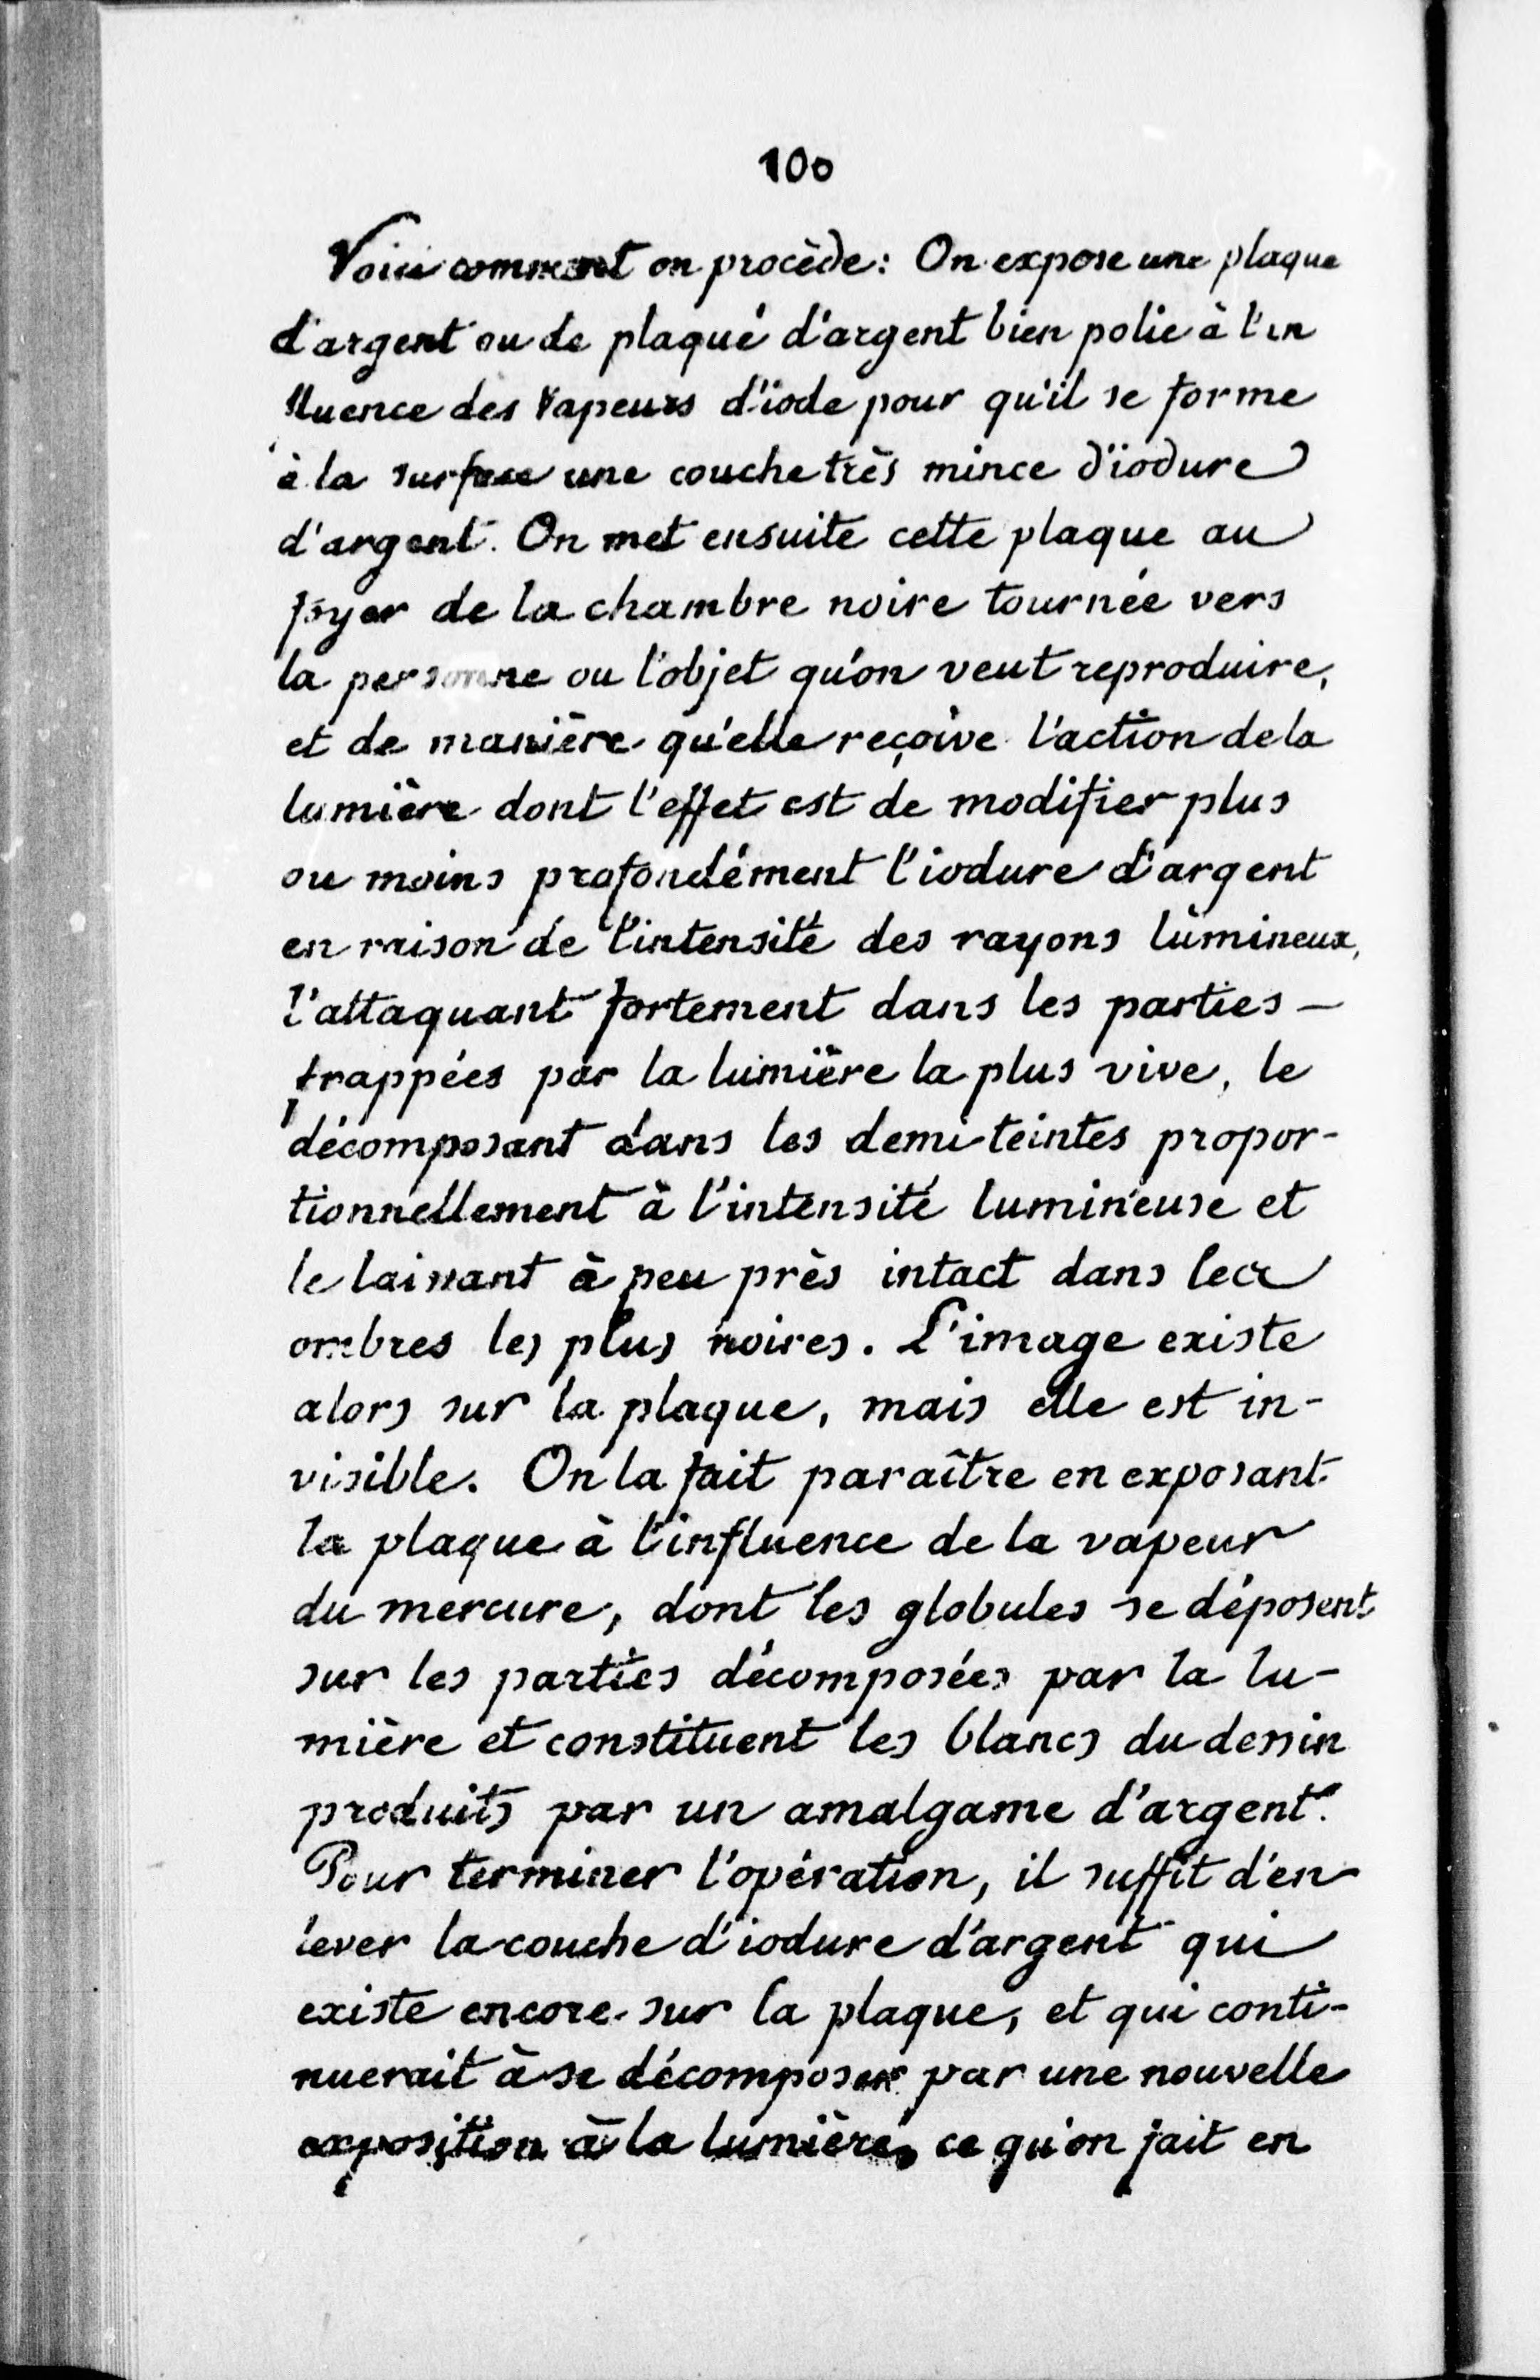 100
Voici comment on procède: On expose une plaque
d'argent ou de plaqué d'argent bien polie à l'in
fluence des vapeurs d'iode pour qu'il se forme
à la surface une couche très mince d'iodure
d'argent. On met ensuite cette plaque au
foyer de la chambre noire tournée vers
la personne ou l'objet qu'on veut reproduire,
et de manière qu'elle reçoive l'action de la
lumière dont l'effet est de modifier plus
ou moins profondément l'iodure d'argent
en raison de l'intensité des rayons lumineux,
l'attaquant fortement dans les parties –
frappées par la lumière la plus vive, le
décomposant dans les demi-teintes propor-
tionnellement à l'intensité lumineuse et
le laissant à peu près intact dans les
ombres les plus noires. L'image existe
alors sur la plaque, mais elle est in-
visible. On la fait paraître en exposant
la plaque à l'influence de la vapeur
du mercure, dont les globules se déposent
sur les parties décomposées par la lu-
mière et constituent les blancs du dessin
produits par un amalgame d'argent.
Pour terminer l'opération, il suffit d'en
lever la couche d'iodure d'argent qui
existe encore sur la plaque, et qui conti-
nuerait à se décomposer par une nouvelle
exposition à la lumière, ce qu'on fait en